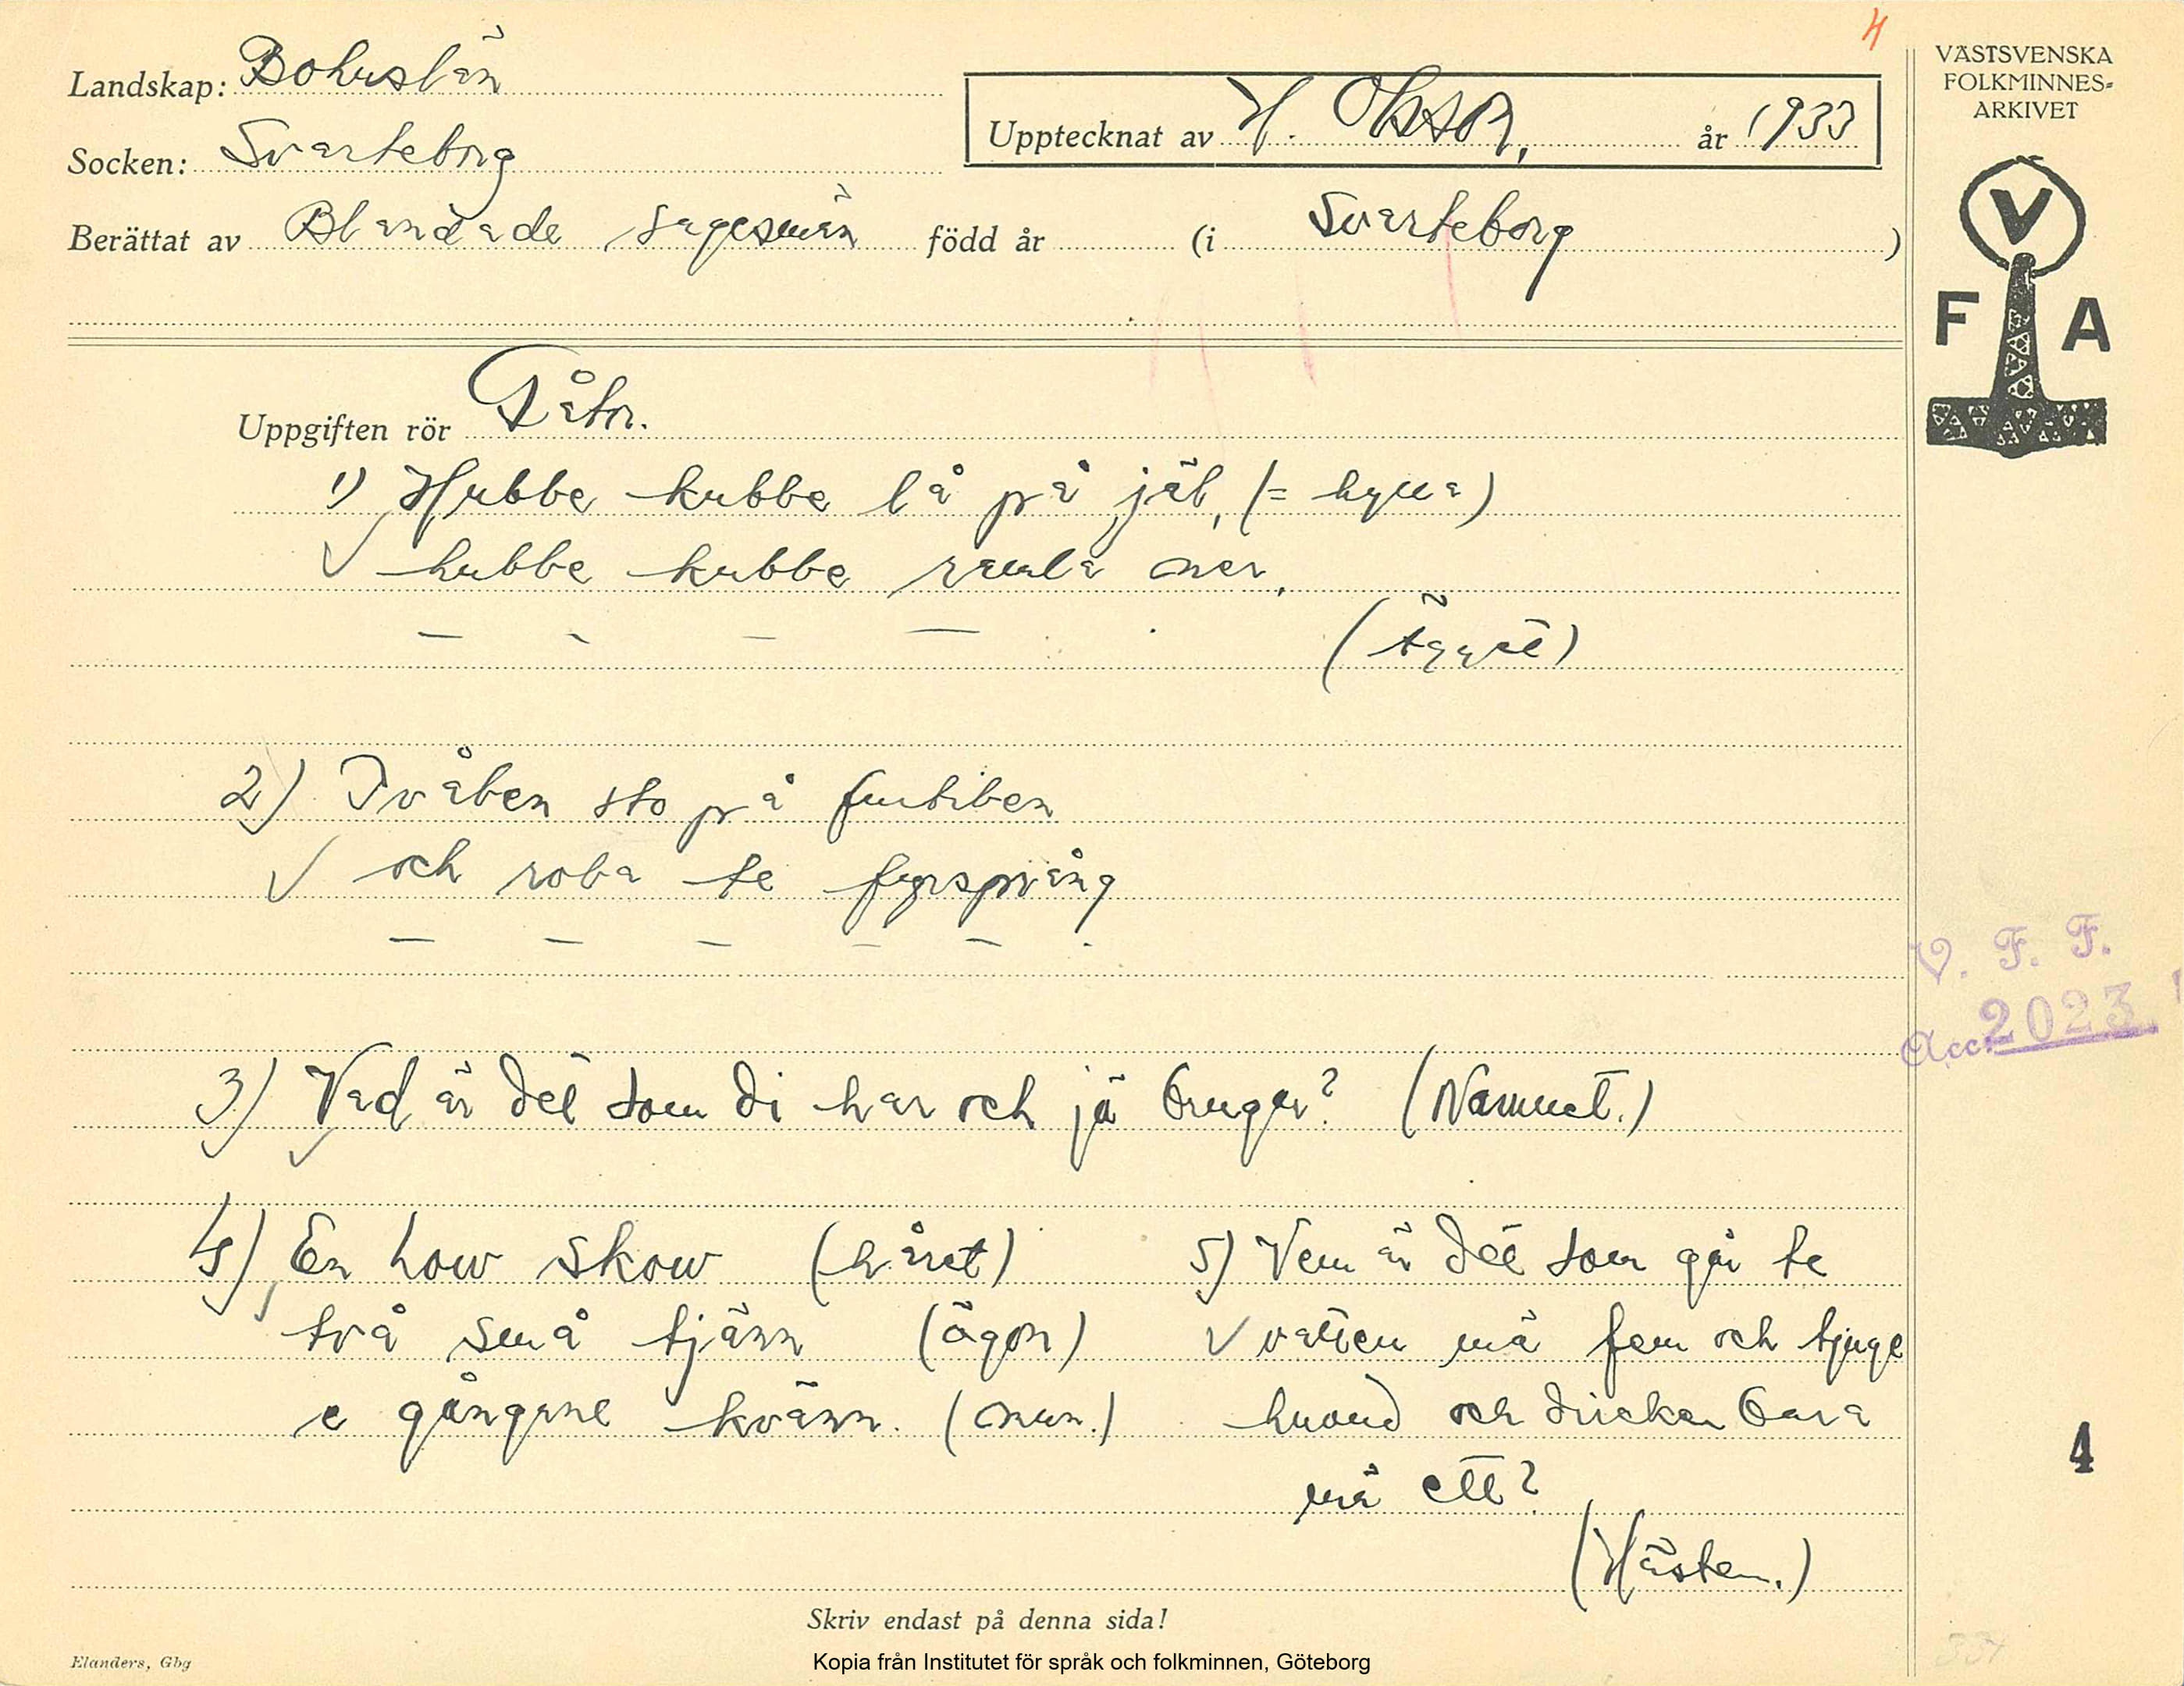 4
Landskap: Bohuslän
Socken: Svarteborg
Upptecknat av H. Olsson, år 1933
Berättat av Blandade sagesmän född år (i Svarteborg )
VÄSTSVENSKA
FOLKMINNES-
ARKIVET
V
F A
Uppgiften rör Gåtor.
1) Hubbe kubbe lå på jäl, (= hylla)
hubbe kubbe ramla ner.
— — — — . (Ägget)
2) Tvåben sto på
och roba te fyrspräng
— — — — — .
V. F. F.
Acc. 2023
3) Vad är det som di har och jä bruger? (Namnet.)
4) En how skow (håret)
två små tjänn (ögon)
e gångane kvänn. (mun.)
5) Vem är det som går te
vatten mä fem och tjuge
huvud och dricker bara
mä ett?
(Hästen.)
4
Skriv endast på denna sida!
Elanders, Gbg
Kopia från Institutet för språk och folkminnen, Göteborg
334